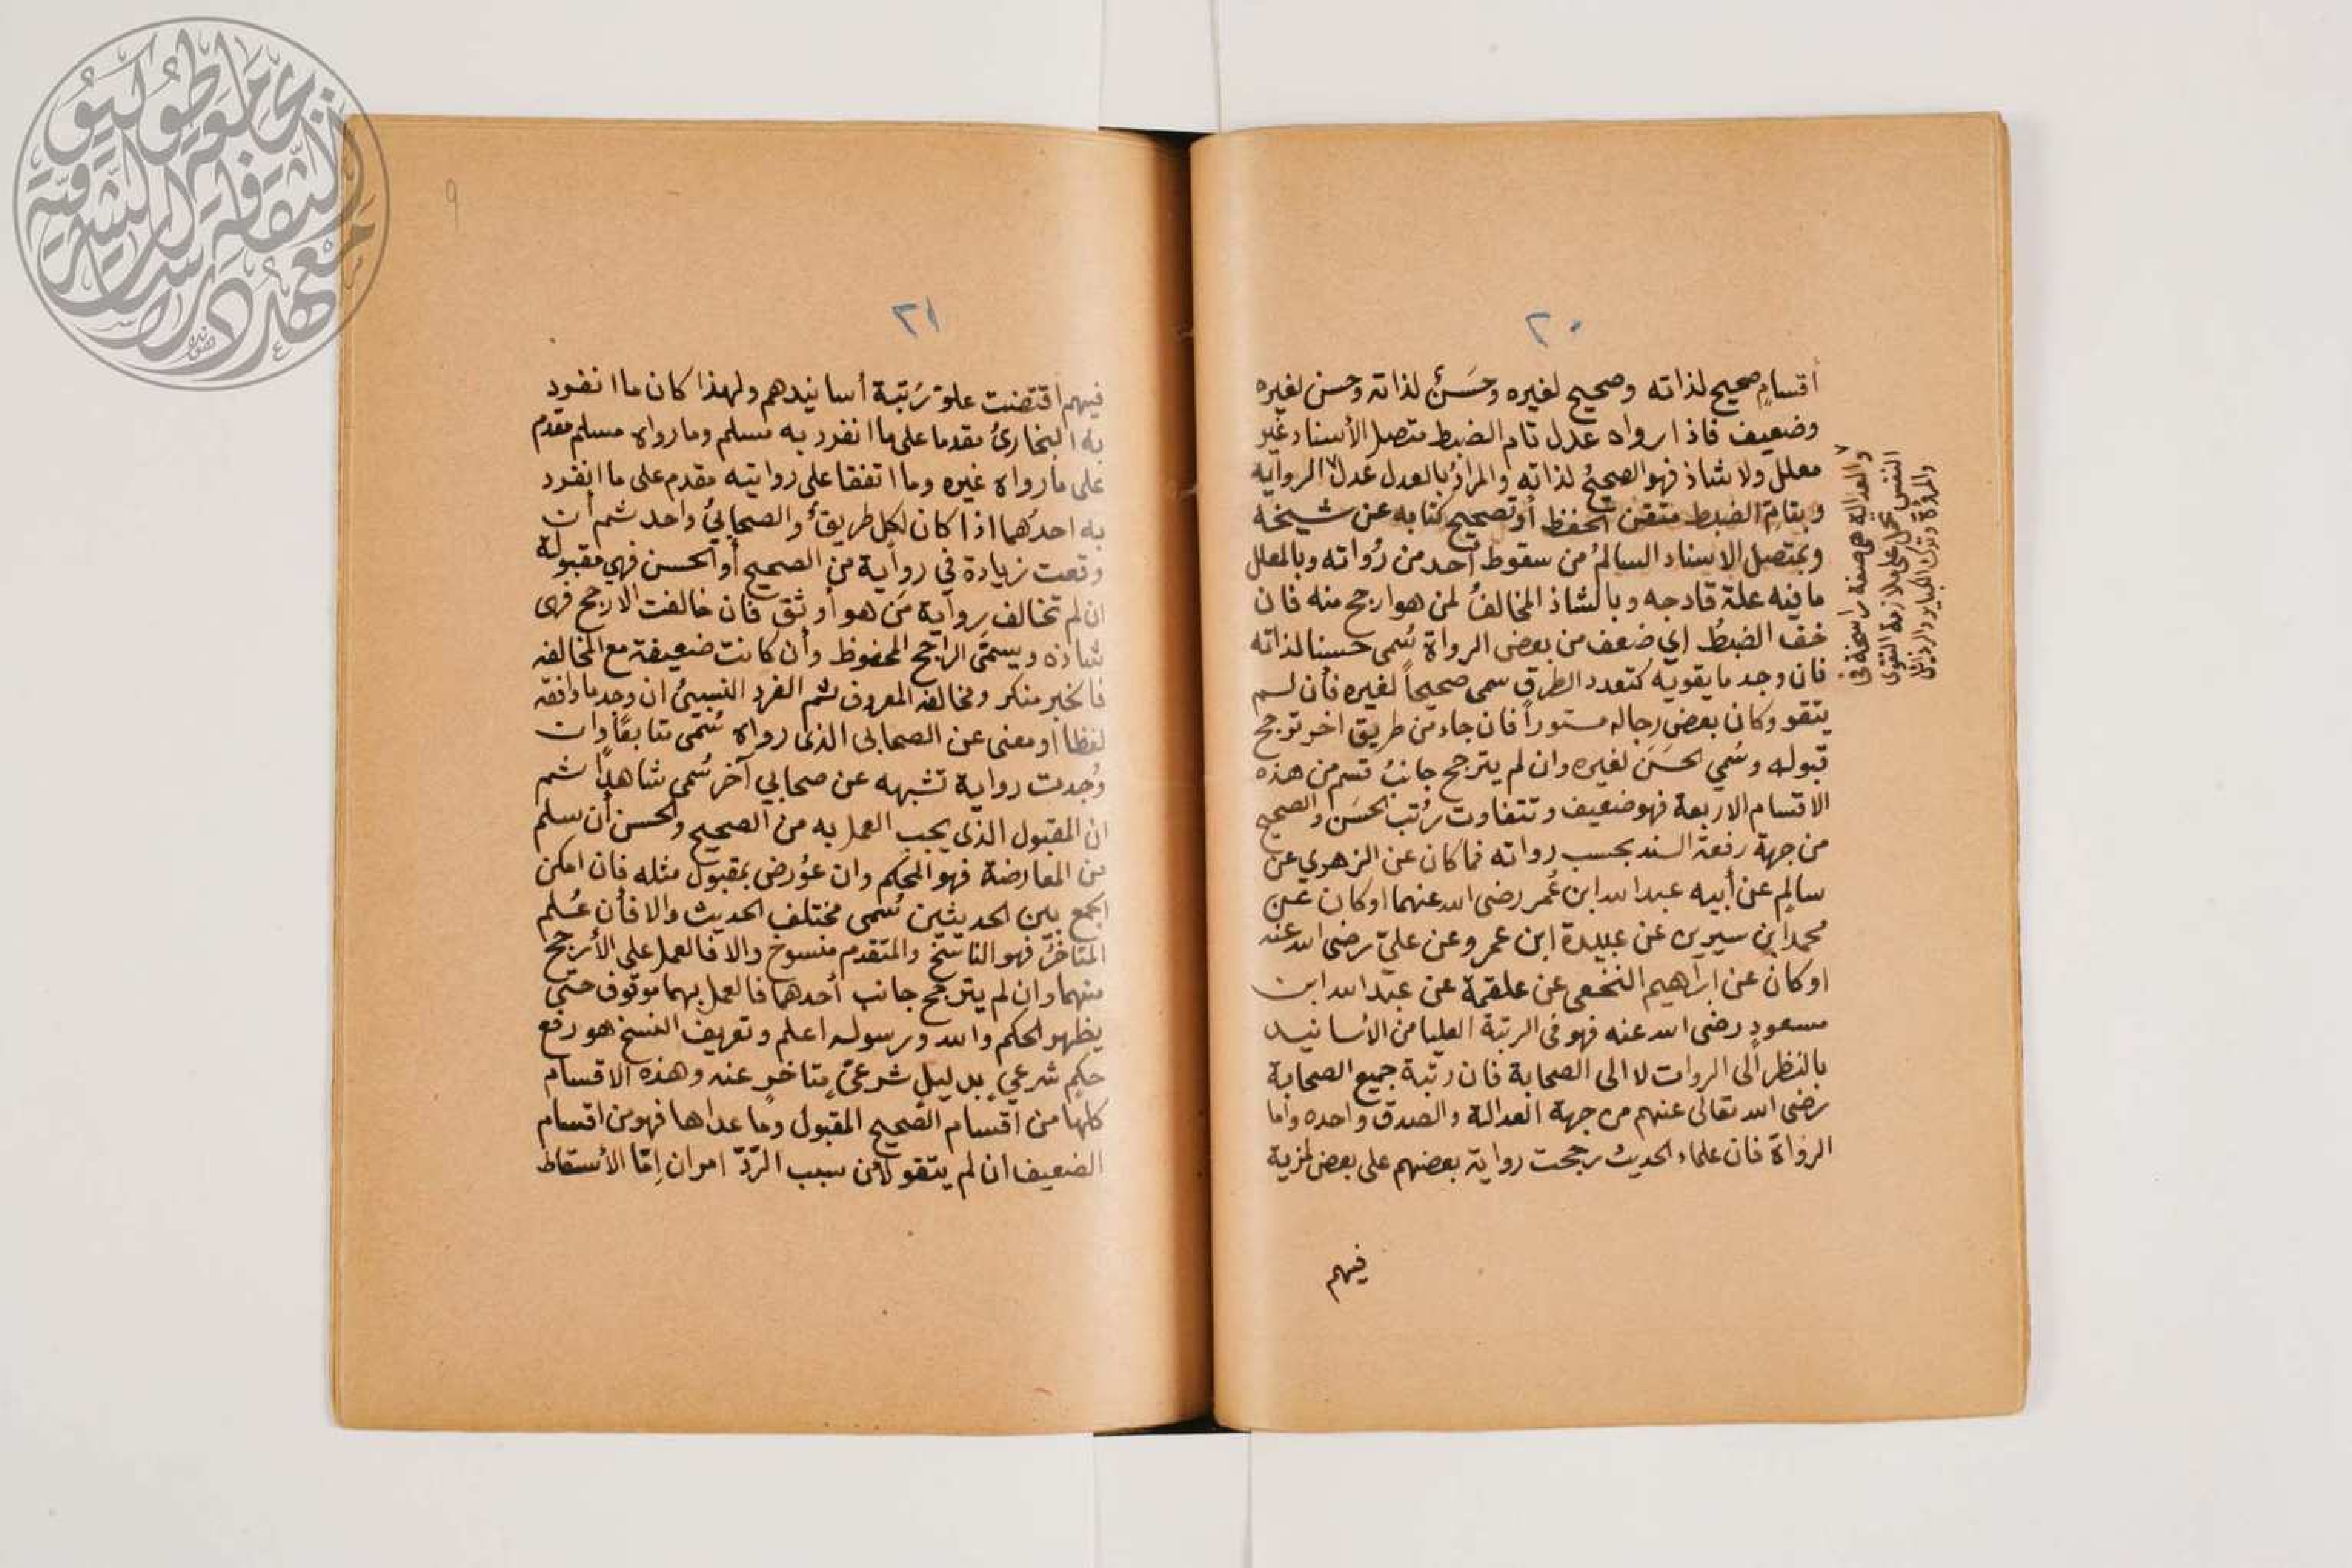 ٢٠
أقسامٍ صحيح لذاته وصحيح لغيره وحَسَنٌ لذاته وحسن لغيره
وضعيف فاذا رواه عدل تام الضبط متصل الأسناد غير
معلل ولا شاذ فهو الصحيحُ لذاته والمرادُ بالعدل عدل الرواية
وبتام الضبط متقن الحفظ أو تصحيح كتابه عن شيخه
وبمتصل الاسناد السالمُ من سقوط أحد من رُواته وبالمعلل
ما فيه علة قادحه وبالشاذ المخالفُ لمن هو ارجح منه فان
خف الضبطُ اي ضعف من بعض الرواة سُمى حسنا لذاته
فان وجد ما يقويه كتعدد الطرق سمى صحيحاً لغيره فأن لم
يتقو وكان بعض رجاله مستوراً فان جاء من طريق اخر ترجح
قبوله وسُمي الحَسَنَ لغيره وان لم يترجح جانبُ قسم من هذه
الاقسام الاربعة فهو ضعيف وتتفاوت رُتب الحَسَن والصحيح
من جهة رفعة السند بحسب رواته فما كان عن الزهري عن
سالمٍ عن أبيه عبد الله ابن عُمر رضى الله عنهما او كان عن
محمد ابن سيرين عن عبيدة ابن عمر وعن عليّ رضى الله عنه
او كان عن ابراهيم النخعى عن علقمة عن عبد الله ابن
مسعودٍ رضى الله عنه فهو فى الرتبة العليا من الأسانيد
بالنظر الى الروات لا الى الصحابة فان رتبة جميع الصحابة
رضى الله تعالى عنهم من جهة العدالة والصدق واحده واما
الرواة فان علماء الحديث رجحت رواية بعضهم على بعض لمزية
فيهم
والعدالة هى صفة راسخة فى
النفس تحمل على ملازمة التقوى
والمروة وترك الكباير والرذايل
٩
٢١
فيهم اقتضت علوّ رُتبة أسانيدهم ولهذا كان ما انفرد
به البخارىُّ مقدما على ما انفرد به مسلم وما رواه مسلم مقدم
على ما رواه غيره وما اتفقا على روايته مقدم على ما انفرد
به احدُهما اذا كان لكل طريقٌ والصحابيُّ واحد ثم أن
وقعت زيادة في رواية من الصحيح أو الحسن فهي مقبولة
ان لم تخالف رواية مَن هو أوثق فان خالفت الارجح فهى
شاذه ويسمّى الراجح المحفوظ وأن كانت ضعيفة مع المخالفه
فالخبر منكر ومخالفه المعروف ثم الفرد النسبىُّ ان وجد ما وافقه
لفظاً او معنى عن الصحابى الذى رواه سُمّى متابعًا وان
وُجدت رواية تشبهه عن صحابي آخر سُمى شاهداً ثم
ان المقبول الذى يجب العمل به من الصحيح والحسن أن سلم
من المعارضة فهو المحكم وان عوُرض بمقبول مثله فان امكن
الجمع بين الحديثين سُمى مختلف الحديث والا فأن عُلم
المتاخرُ فهو الناسخُ والمتقدم منسوخ والا فالعمل على الأرجح
منهما وان لم يترجح جانب أحدهما فالعمل بهما موقوف حتى
يظهر الحكم والله ورسوله اعلم وتعريف النسخ هو رفع
حكمٍ شرعيٍ بدليلٍ شرعيّ متاخرٍ عنه وهذه الاقسام
كلها من أقسام الصحيح المقبول وما عداها فهو من اقسام
الضعيف ان لم يتقو لأن سبب الرَّدّ امران إمّا الأسقاط